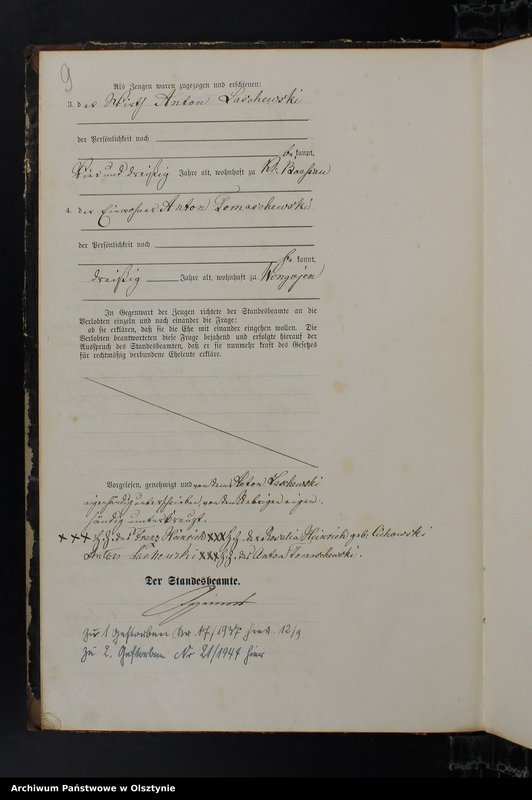 9
Als Zeugen waren zugezogen und erschienen:
3. der Wirth Anton Laschewski
der Persönlichkeit nach
be kannt,
Vier und dreißig Jahre alt, wohnhaft zu Kl.
4. der Einwohner Anton Tomaschewski
der Persönlichkeit nach
be kannt,
dreißig Jahre alt, wohnhaft zu Wengojen
In Gegenwart der Zeugen richtete der Standesbeamte an die
Verlobten einzeln und nach einander die Frage:
ob sie erklären, daß sie die Ehe mit einander eingehen wollen. Die
Verlobten beantworteten diese Frage bejahend und erfolgte hierauf der
Ausspruch des Standesbeamten, daß er sie nunmehr kraft des Gesetzes
für rechtmäßig verbundene Eheleute erkläre.
Vorgelesen, genehmigt und von dem Anton Laschewski
eigenhändig unterschrieben, von den Uebrigen eigen-
händig unterkreuzt.
xxx Hz. des Franz Heinrich xxx Hz. der Rosalia Heinrich geb. Cichowski
Anton xxx Hz. des Anton Tomaschewski.
Der Standesbeamte.
Zu 1 Gestorben Nr. 17/1937 hier 12/9
Zu 2. Gestorben Nr 21/1944 hier
Archiwum Państwowe w Olsztynie